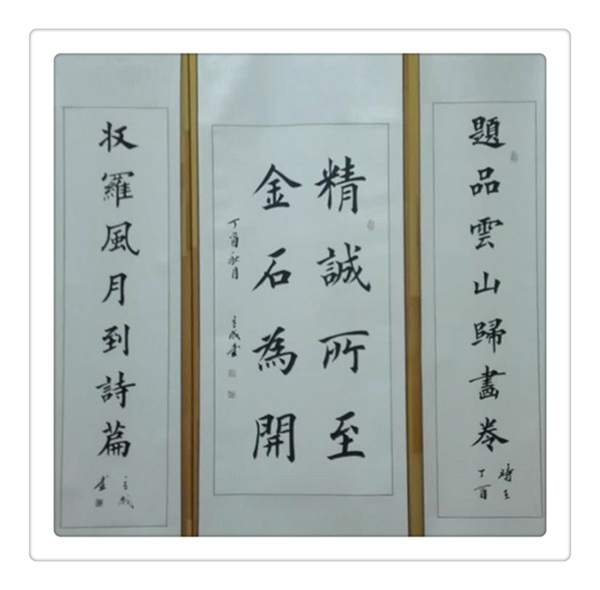 題品雲山歸畫卷
丁酉
精誠所至
金石為開
丁酉秋月
收羅風月到詩篇
書